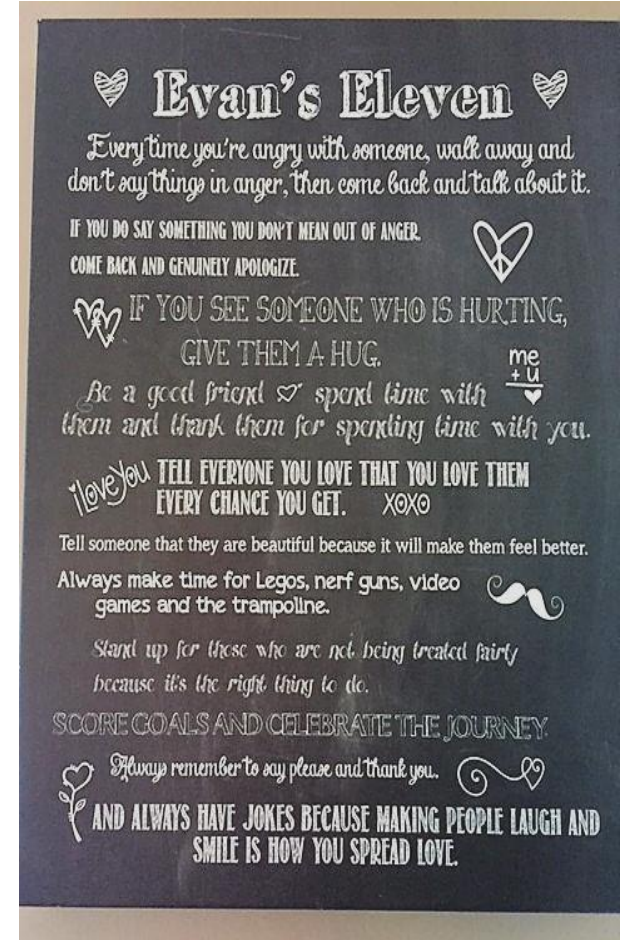 Evan's Eleven
Every time you're angry with someone, walk away and
don't say things in anger, then come back and talk about it.
IF YOU DO SAY SOMETHING YOU DON'T MEAN OUT OF ANGER.
COME BACK AND GENUINELY APOLOGIZE.
IF YOU SEE SOMEONE WHO IS HURTING,
GIVE THEM A HUG.
me
+ u
Be a good friend spend time with
them and thank them for spending time with you.
i love you
TELL EVERYONE YOU LOVE THAT YOU LOVE THEM
EVERY CHANCE YOU GET. XOXO
Tell someone that they are beautiful because it will make them feel better.
Always make time for Legos, nerf guns, video
games and the trampoline.
Stand up for those who are not being treated fairly
because it's the right thing to do.
SCORE GOALS AND CELEBRATE THE JOURNEY.
Always remember to say please and thank you.
AND ALWAYS HAVE JOKES BECAUSE MAKING PEOPLE LAUGH AND
SMILE IS HOW YOU SPREAD LOVE.